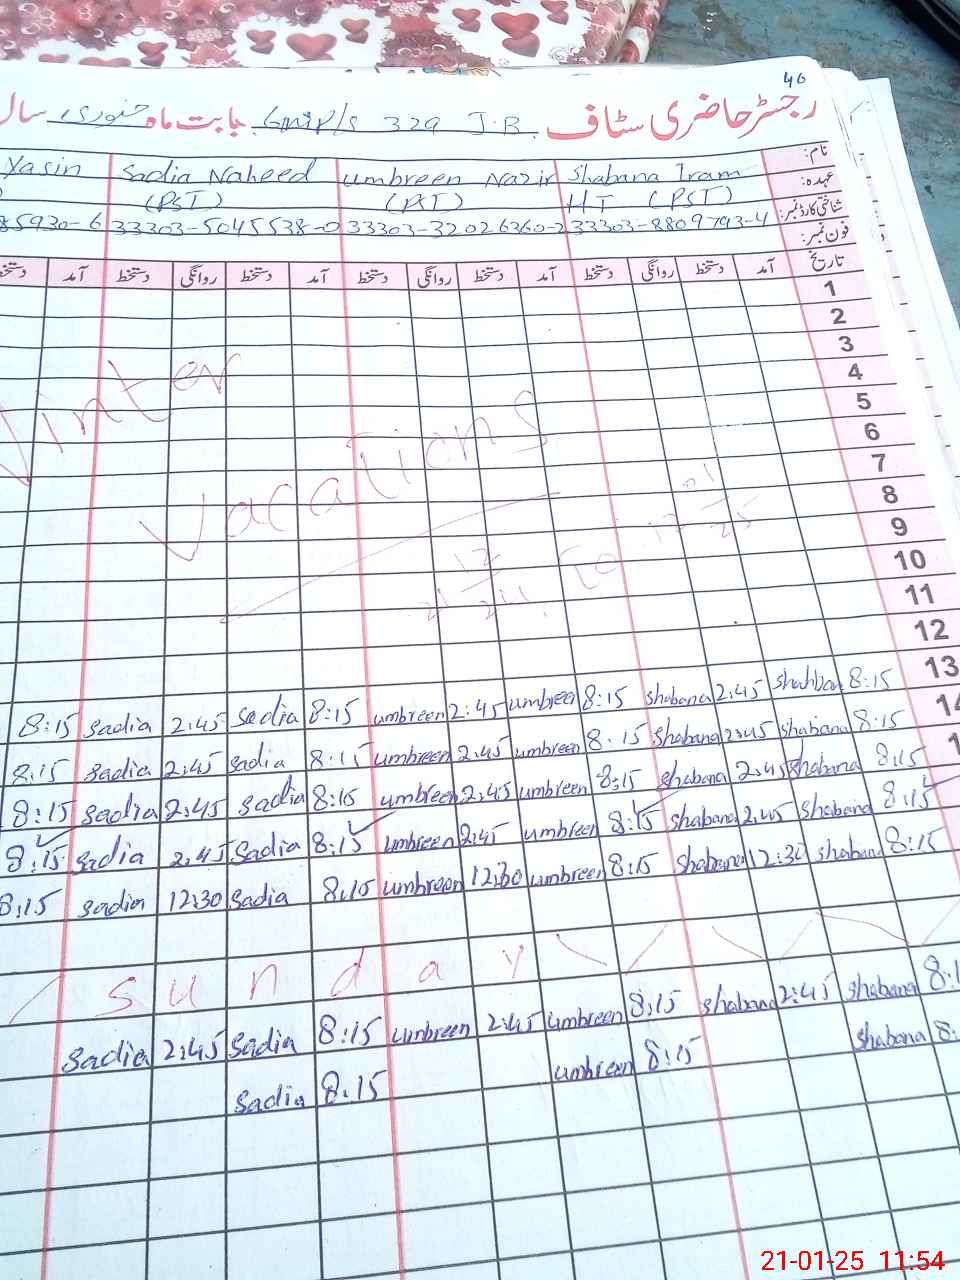 40
رجسٹر حاضری سٹاف GMP/S 329 J.B. بابت ماہ جنوری سال
نام: Shabana Iram Umbreen Nazir Sadia Naheed Yasin
عہدہ: HT (PST) (PST) (PST)
شناختی کارڈ نمبر: 33303-8809793-4 33303-32026360-2 33303-5045538-0 85930-6
فون نمبر:
تاریخ آمد دستخط روانگی دستخط آمد دستخط روانگی دستخط آمد دستخط روانگی دستخط آمد
1
2
3
4
5
6
7
8
9
10
11
12
13
Winter
Vacations
8:15 Sadia 2:45 Sadia 8:15 umbreen 2:45 umbreen 8:15 Shabana 2:45 Shahban 8:15
8:15 Sadia 2:45 Sadia 8:15 umbreen 2:45 umbreen 8:15 Shabana 2:45 Shabana 8:15
8:15 Sadia 2:45 Sadia 8:15 umbreen 2:45 umbreen 8:15 Shabana 2:45 Shabana 8:15
8:15 Sadia 2:45 Sadia 8:15 umbreen 2:45 umbreen 8:15 Shabana 2:45 Shabana 8:15
8:15 Sadia 12:30 Sadia 8:15 umbreen 12:30 umbreen 8:15 Shabana 12:30 Shabana 8:15
Sunday
Sadia 2:45 Sadia 8:15 umbreen 2:45 umbreen 8:15 Shabana 2:45 Shabana
Sadia 8:15 umbreen 8:15 Shabana
21-01-25 11:54